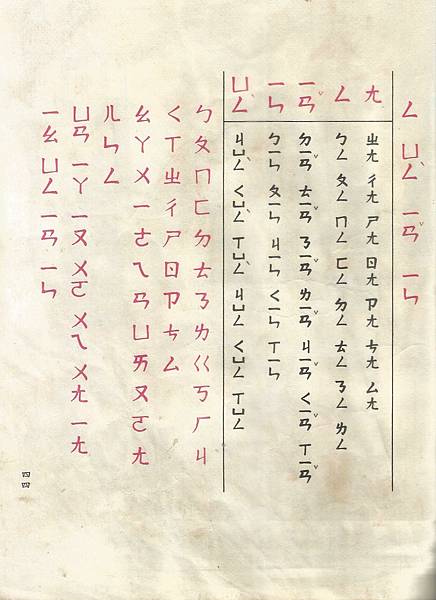 ㄥ ㄩㄥˋ ㄧㄢˇ ㄧㄣ
ㄤ ㄓㄤ ㄔㄤ ㄕㄤ ㄖㄤ ㄗㄤ ㄘㄤ ㄙㄤ
ㄥ ㄅㄥ ㄆㄥ ㄇㄥ ㄈㄥ ㄉㄥ ㄊㄥ ㄋㄥ ㄌㄥ
ㄧㄢˇ ㄉㄧㄢˇ ㄊㄧㄢˇ ㄋㄧㄢˇ ㄌㄧㄢˇ ㄐㄧㄢˇ ㄑㄧㄢˇ ㄒㄧㄢˇ
ㄧㄣ ㄅㄧㄣ ㄆㄧㄣ ㄐㄧㄣ ㄑㄧㄣ ㄒㄧㄣ
ㄩㄥˋ ㄐㄩㄥˋ ㄑㄩㄥˋ ㄒㄩㄥˋ ㄐㄩㄥ ㄑㄩㄥ ㄒㄩㄥ
ㄅ ㄆ ㄇ ㄈ ㄉ ㄊ ㄋ ㄌ ㄍ ㄎ ㄏ ㄐ
ㄑ ㄒ ㄓ ㄔ ㄕ ㄖ ㄗ ㄘ ㄙ
ㄠ ㄚ ㄨ ㄧ ㄜ ㄟ ㄢ ㄩ ㄞ ㄡ ㄛ ㄤ
ㄦ ㄣ ㄥ
ㄩㄢ ㄧㄚ ㄧㄡ ㄨㄛ ㄨㄟ ㄨㄤ ㄧㄤ
ㄧㄠ ㄩㄥ ㄧㄢ ㄧㄣ
四四